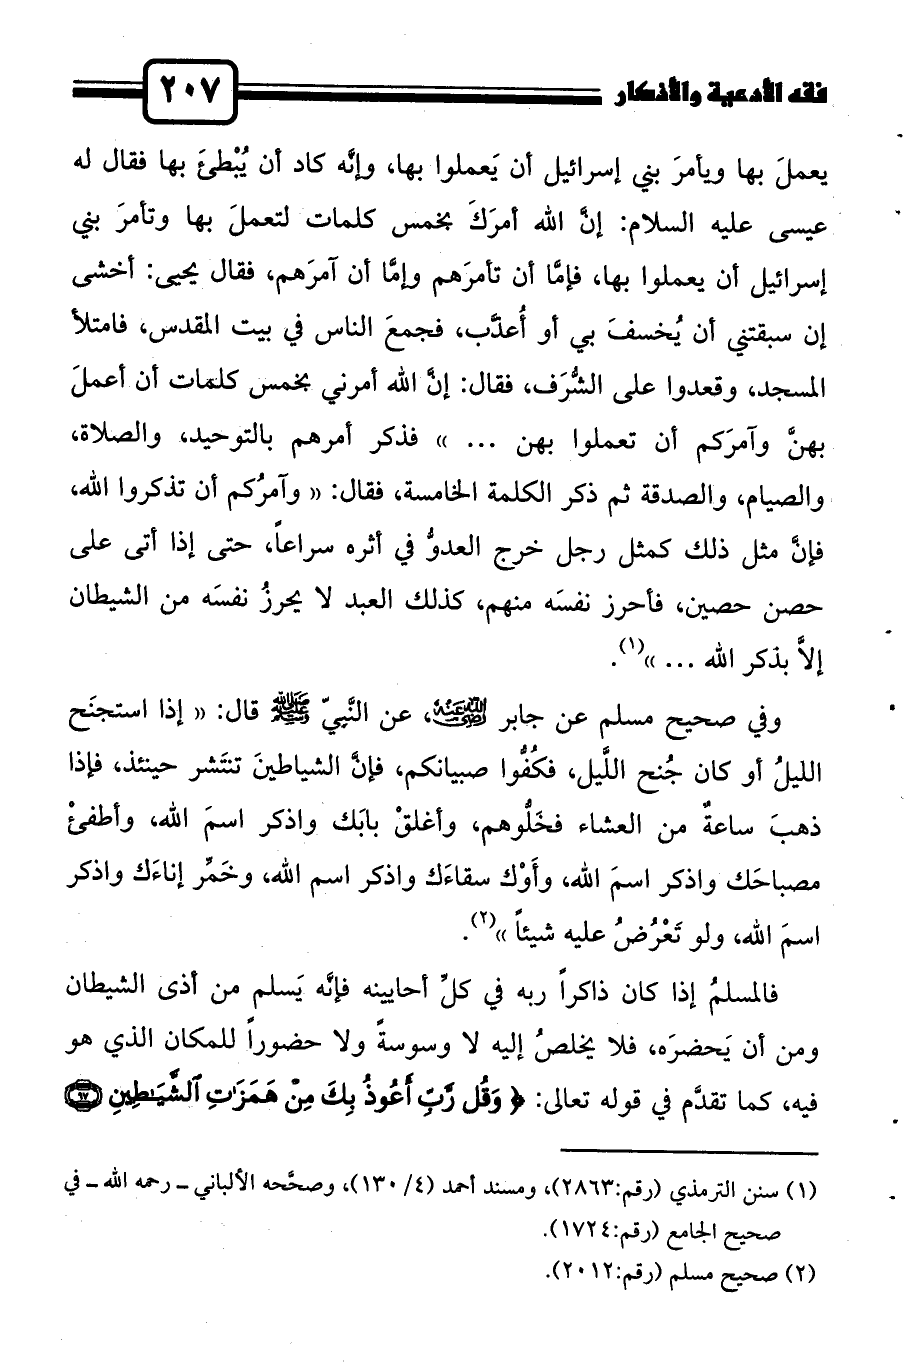 فقه الأدعية والأذكار
٢٠٧
يعملَ بها ويأمرَ بني إسرائيل أن يَعملوا بها، وإنَّه كاد أن يُبْطئَ بها فقال له
عيسى عليه السلام: إنَّ الله أمرَكَ بخمس كلمات لتعملَ بها وتأمرَ بني
إسرائيل أن يعملوا بها، فإمَّا أن تأمرَهم وإمَّا أن آمرَهم، فقال يحيى: أخشى
إن سبقتني أن يُخسفَ بي أو أُعذَّب، فجمعَ الناس في بيت المقدس، فامتلأ
المسجد، وقعدوا على الشُّرَف، فقال: إنَّ الله أمرني بخمس كلمات أن أعملَ
بهنَّ وآمرَكم أن تعملوا بهن ... » فذكر أمرهم بالتوحيد، والصلاة،
والصيام، والصدقة ثم ذكر الكلمة الخامسة، فقال: « وآمرُكم أن تذكروا الله،
فإنَّ مثل ذلك كمثل رجل خرج العدوُّ في أثره سراعاً، حتى إذا أتى على
حصن حصين، فأحرز نفسَه منهم، كذلك العبد لا يحرزُ نفسَه من الشيطان
إلاَّ بذكر الله ... »(١).
وفي صحيح مسلم عن جابر رضي الله عنه، عن النَّبيّ ﷺ قال: « إذا استجنَح
الليلُ أو كان جُنح اللَّيل، فكُفُّوا صبيانكم، فإنَّ الشياطينَ تنتَشر حينئذ، فإذا
ذهبَ ساعةٌ من العشاء فخَلُّوهم، وأغلقْ بابَك واذكر اسمَ الله، وأطفئْ
مصباحَك واذكر اسمَ الله، وأَوْك سقاءَك واذكر اسم الله، وخَمِّر إناءَك واذكر
اسمَ الله، ولو تَعْرُضُ عليه شيئاً »(٢).
فالمسلمُ إذا كان ذاكراً ربه في كلِّ أحايينه فإنَّه يَسلم من أذى الشيطان
ومن أن يَحضرَه، فلا يخلصُ إليه لا وسوسةً ولا حضوراً للمكان الذي هو
فيه، كما تقدَّم في قوله تعالى: ﴿ وَقُل رَّبِّ أَعُوذُ بِكَ مِنْ هَمَزَٰتِ ٱلشَّيَٰطِينِ ۝٩٧
(١) سنن الترمذي (رقم:٢٨٦٣)، ومسند أحمد (٤/ ١٣٠)، وصحَّحه الألباني ــ رحمه الله ــ في
صحيح الجامع (رقم:١٧٢٤).
(٢) صحيح مسلم (رقم:٢٠١٢).